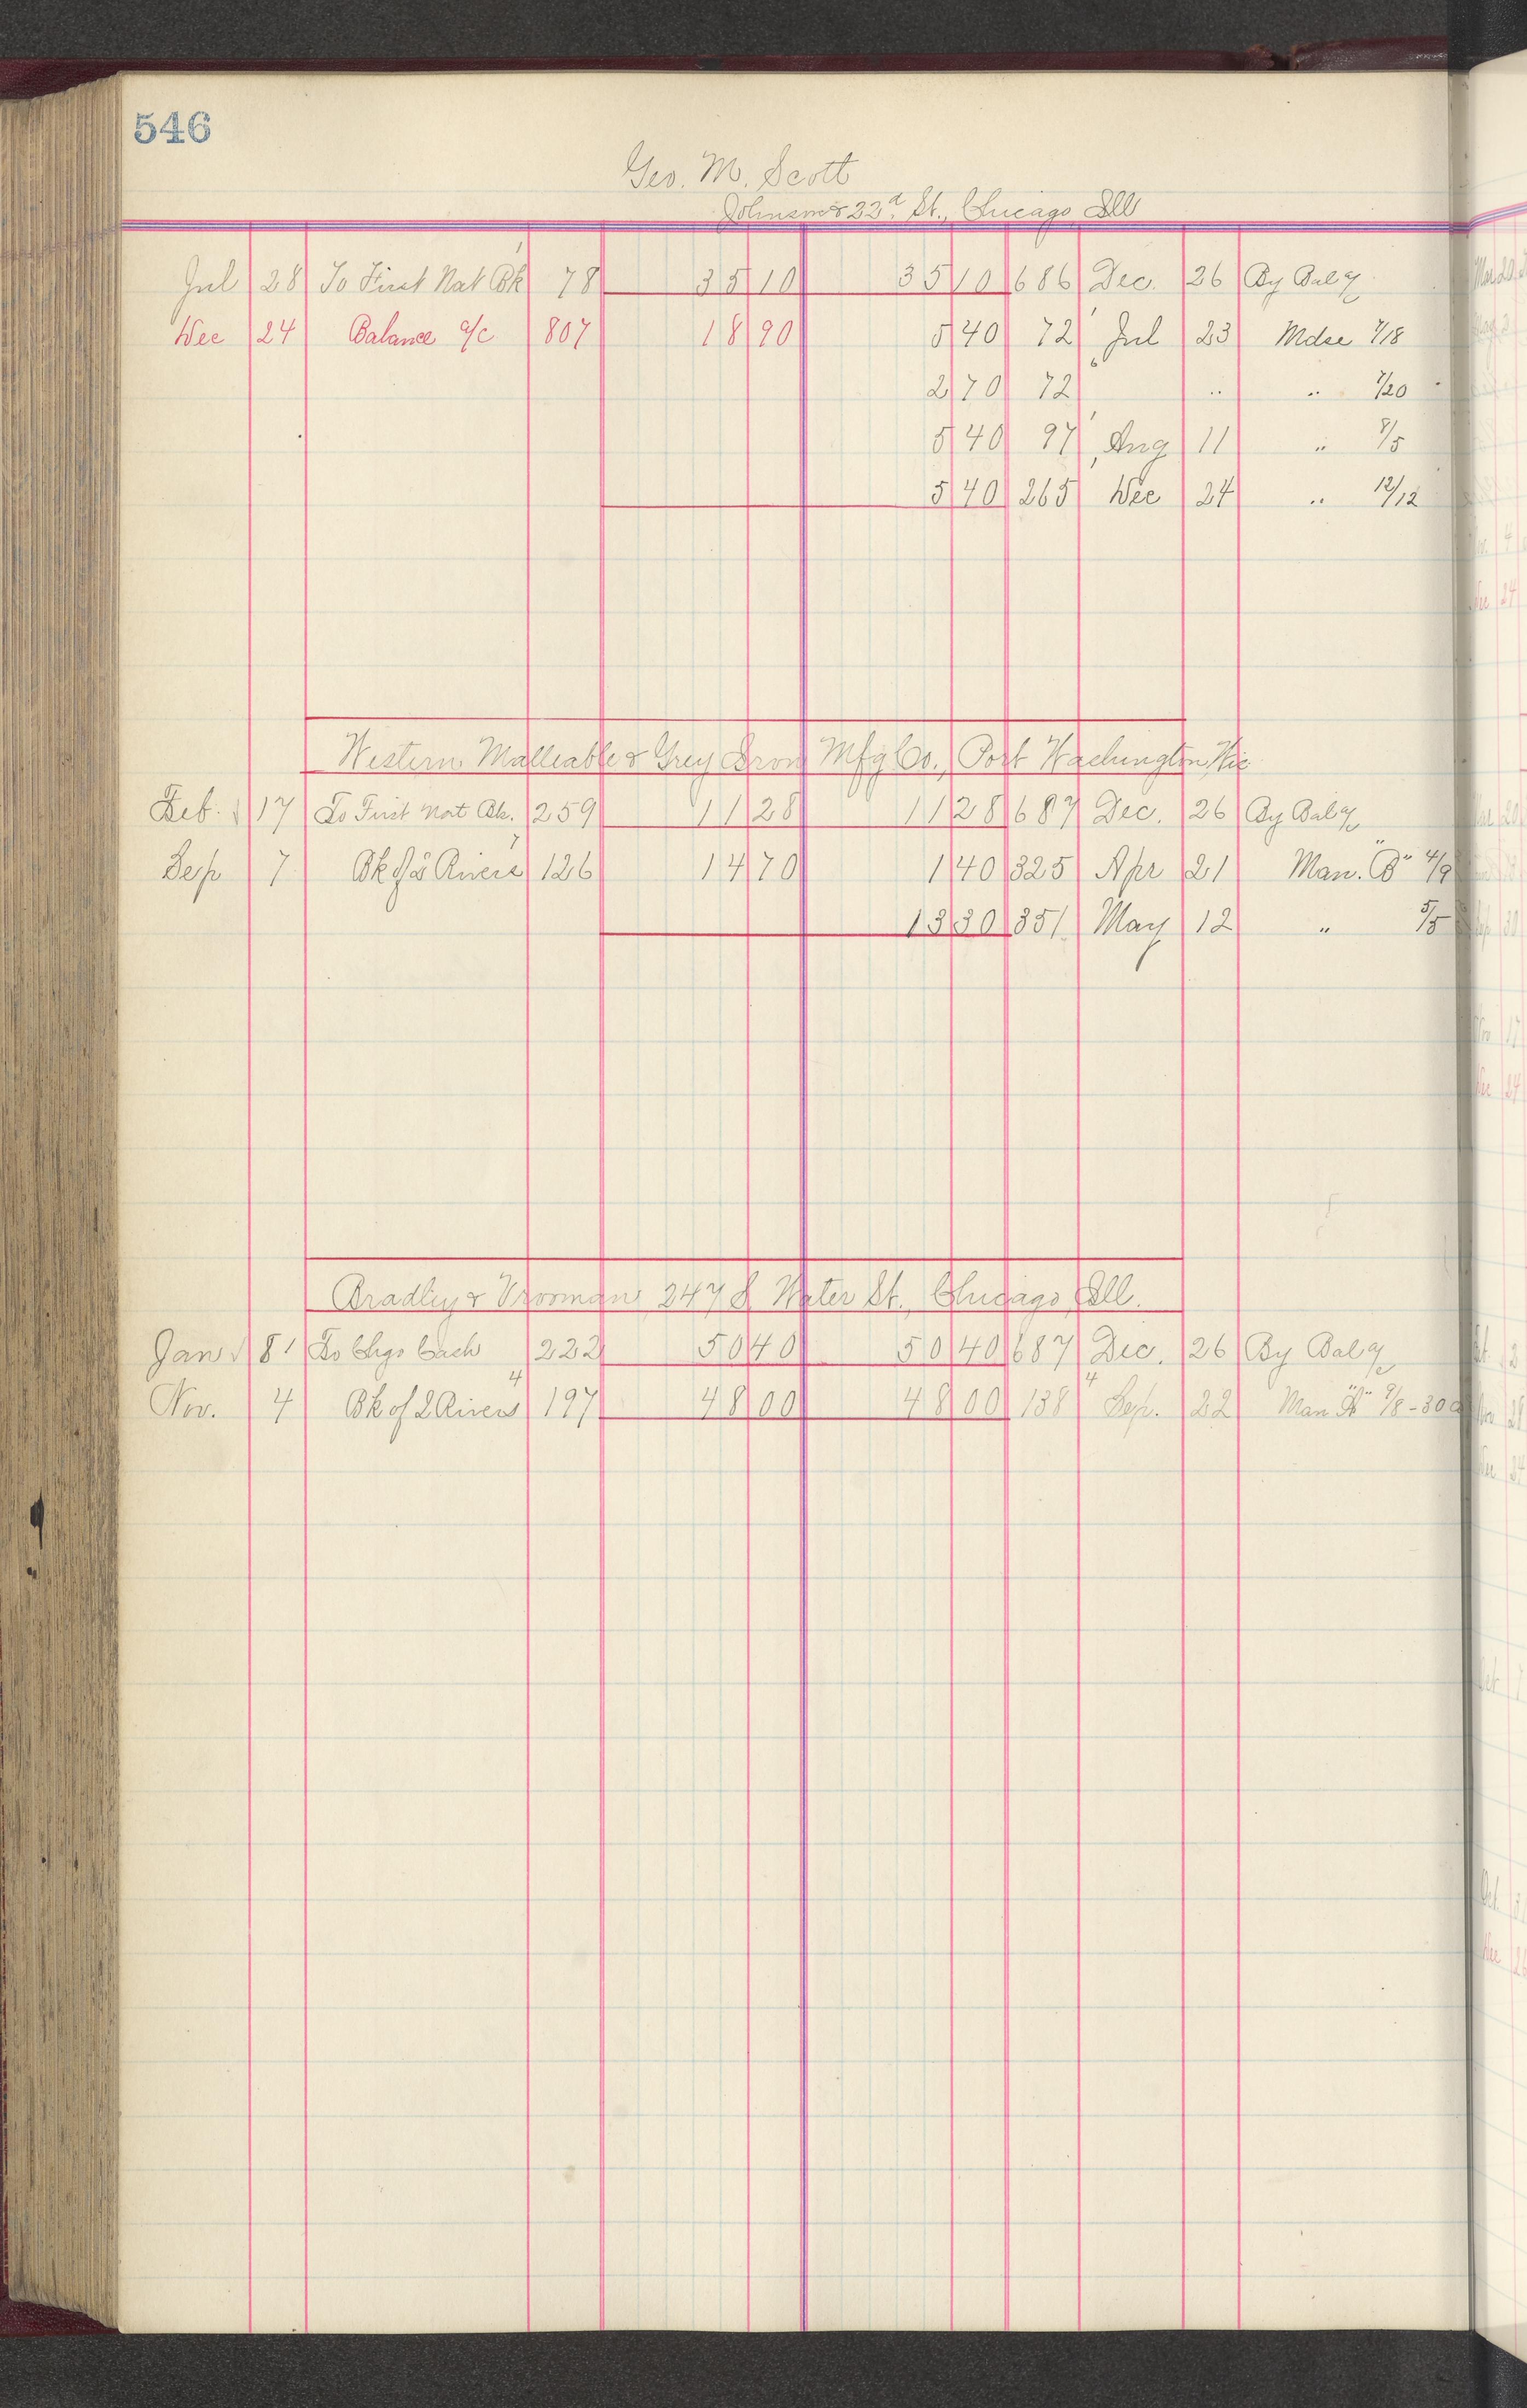 546
Geo. M. Scott
Johnson & 22d St., Chicago Ill
Jul 28 To First Nat Bk 78 35 10 35 10 686 Dec. 26 By Bal a/c
Dec 24 Balance a/c 807 18 90 5 40 72 Jul 23 Mdse 7/18
2 70 72 " .. .. 7/20
5 40 97 Aug 11 .. 8/5
5 40 265 Dec 24 .. 12/12
Western Malleable & Grey Iron Mfg Co., Port Washington Wis
Feb. 17 To First Nat Bk. 259 11 28 11 28 687 Dec. 26 By Bal a/c
Sep 7 Bk of 2 Rivers 7 126 14 70 1 40 325 Apr 21 Man. "B" 4/9
13 30 351 May 12 " 5/5
Bradley & Vrooman 247 S Water St., Chicago Ill.
Jan 8 To Chgo Cash 222 50 40 50 40 687 Dec. 26 By Bal a/c
Nov. 4 Bk of 2 Rivers 4 197 48 00 48 00 138 4 Sep. 22 Man "A" 9/8-30